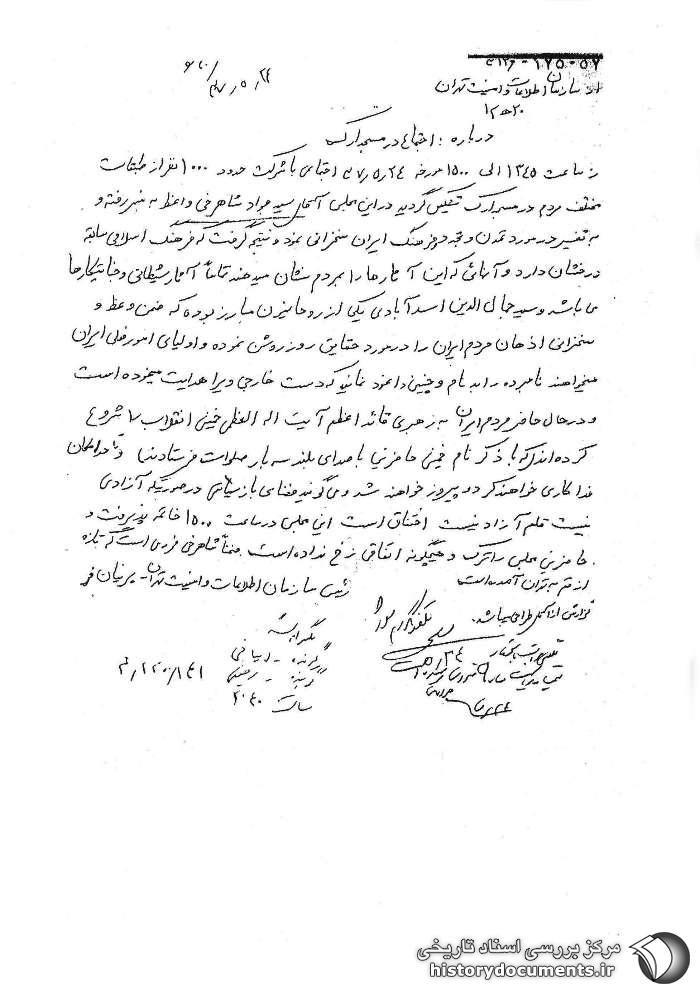 از سازمان اطلاعات و امنیت تهران
۲۰ ه ۱۲
درباره : اجتماع در مسجد ارک
از ساعت ۱۳۴۵ الی ۱۵۰۰ مورخه ۲۴/۵/۳۷ اجتماعی با شرکت حدود ۱۰۰۰ نفر از طبقات
مختلف مردم در مسجد ارک تشکیل گردید در این مجلس آقای سید جواد شاهرخی واعظ به منبر رفته و
به تفسیر در مورد تمدن و تجدد و فرهنگ ایران سخنرانی نمود و نتیجه گرفت که فرهنگ اسلامی سابقه
درخشان دارد و آنهائی که این آثارها را بمردم نشان میدهند تماماً آثار شیطانی و جنایتکارها
می باشد و سید جمال الدین اسدآبادی یکی از روحانیون مبارز بوده که ضمن وعظ و
سخنرانی اذهان مردم ایران را در مورد حقایق روز روشن نموده و اولیای امور فعلی ایران
میخواهند نامبرده را بد نام و چنین وانمود نمایند که دست خارجی ویرا هدایت مینموده است
و در حال حاضر مردم ایران به رهبری قائد اعظم آیت اله العظمی خمینی انقلاب را شروع
کرده اند که با ذکر نام خمینی حاضرین با صدای بلند سه بار صلوات فرستادند و تا حد امکان
فداکاری خواهند کرد و پیروز خواهند شد و می گویند فضای باز سیاسی در صورتیکه آزادی
نیست قلم آزاد نیست اختناق است این مجلس در ساعت ۱۵۰۰ خاتمه پذیرفت و
حاضرین مجلس را ترک و هیچگونه اتفاقی رخ نداده است ضمناً شاهرخی فردی است که تازه
از قم به تهران آمده است
رئیس سازمان اطلاعات و امنیت تهران - پرنیان فر
گزارش از اکمل طراحی میباشد
تلفنگرام شود
گوینده -
گیرنده -
ساعت ۲۰۳۰
۱۲۰/۱۴۱/م
مرکز بررسی اسناد تاریخی
historydocuments.ir